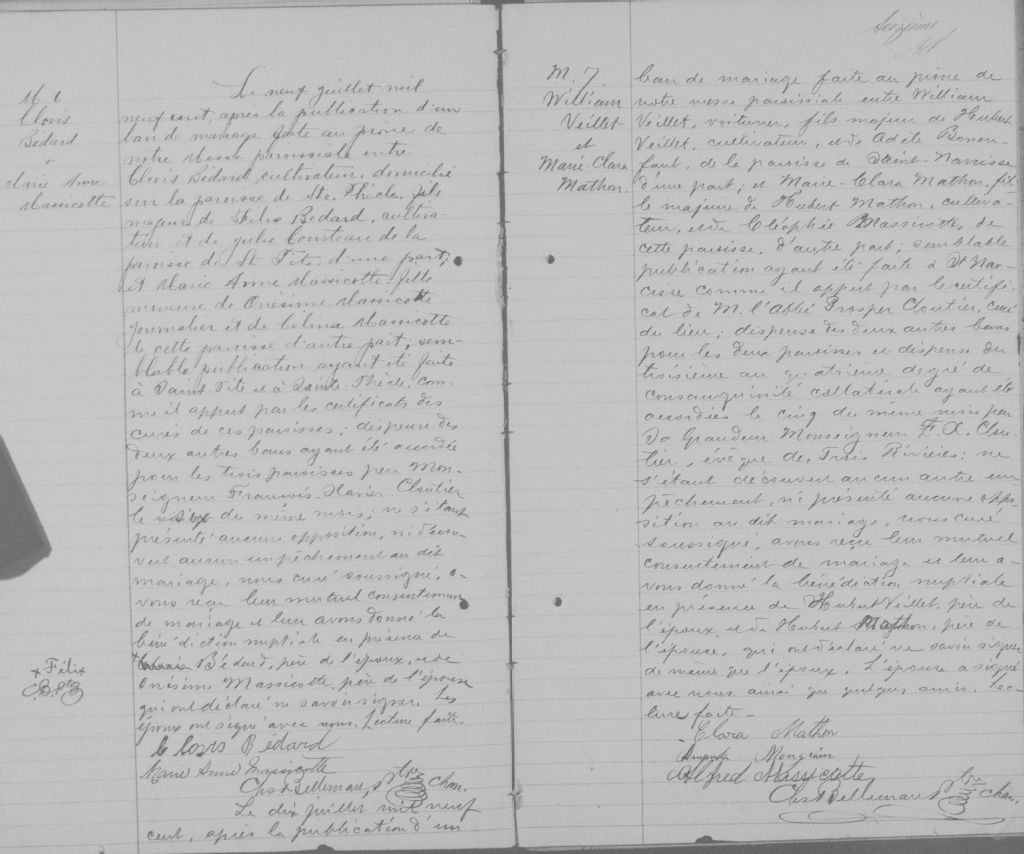 M 6
Clovis
Bédard
+
Marie Anne
Massicotte
Le neuf juillet mil
neuf cent, après la publication d'un
ban de mariage faite au prône de
notre Messe paroissiale entre
Clovis Bédard, cultivateur, domicilié
sur la paroisse de Ste. Thècle, fils
majeur de Félix Bédard, cultiva-
teur et de Julie Courteau de la
paroisse de St Tite, d'une part;
et Marie Anne Massicotte fille
mineure de Onésime Massicotte
journalier et de Célina Massicotte
de cette paroisse d'autre part; sem-
blable publication ayant été faite
à Saint Tite et à Sainte Thècle, com-
me il appert par les certificats des
curés de ces paroisses; dispense des
deux autres bans ayant été accordée
pour les trois paroisses par Mon-
seigneur François-Xavier Cloutier
le du même mois; ne s'étant
présenté aucune opposition, ni décou-
vert aucun empêchement au dit
mariage, nous curé soussigné, a-
vons reçu leur mutuel consentement
de mariage et leur avons donné la
bénédiction nuptiale en présence de
+ Bédard, père de l'époux, et de
Onésime Massicotte, père de l'épouse
qui ont déclaré ne savoir signer. Les
époux ont signé avec nous. Lecture faite.
x Félix
Clovis Bédard
Marie Anne Massicotte
Chs Bellemare Ptre Chan.
Le dix juillet mil neuf
cent, après la publication d'un
Seizième
M. 7.
William
Veillet
et
Marie Clara
Mathon.
ban de mariage faite au prône de
notre messe paroissiale entre William
Veillet, voiturier, fils majeur de Hubert
Veillet, cultivateur, et de Adèle Bonen-
fant, de la paroisse de Saint-Narcisse
d'une part; et Marie-Clara Mathon, fil-
le majeure de Hubert Mathon, cultiva-
teur, et de Cléophée Massicotte, de
cette paroisse, d'autre part; semblable
publication ayant été faite à St Nar-
cisse comme il appert par le certifi-
cat de M. l'abbé Prosper Cloutier, curé
de lieu; dispense des deux autres bans
pour les deux paroisses et dispense du
troisième au quatrième degré de
consanguinité collatérale ayant été
accordées le cinq du même mois par
Sa Grandeur Monseigneur F. X. Clou-
tier, évêque des Trois Rivières; ne
s'étant découvert aucun autre em-
pêchement, ni présenté aucune oppo-
sition au dit mariage, nous curé
soussigné, avons reçu leur mutuel
consentement de mariage et leur a-
vons donné la bénédiction nuptiale
en présence de Hubert Veillet, père de
l'époux, et de Hubert Mathon, père de
l'épouse, qui ont déclaré ne savoir signer
de même que l'époux. L'épouse a signé
avec nous ainsi que quelques amis. Lec-
ture faite -
Clara Mathon
Amanda Mongrain
Alfred Massicotte
Chs Bellemare Ptre Chan.